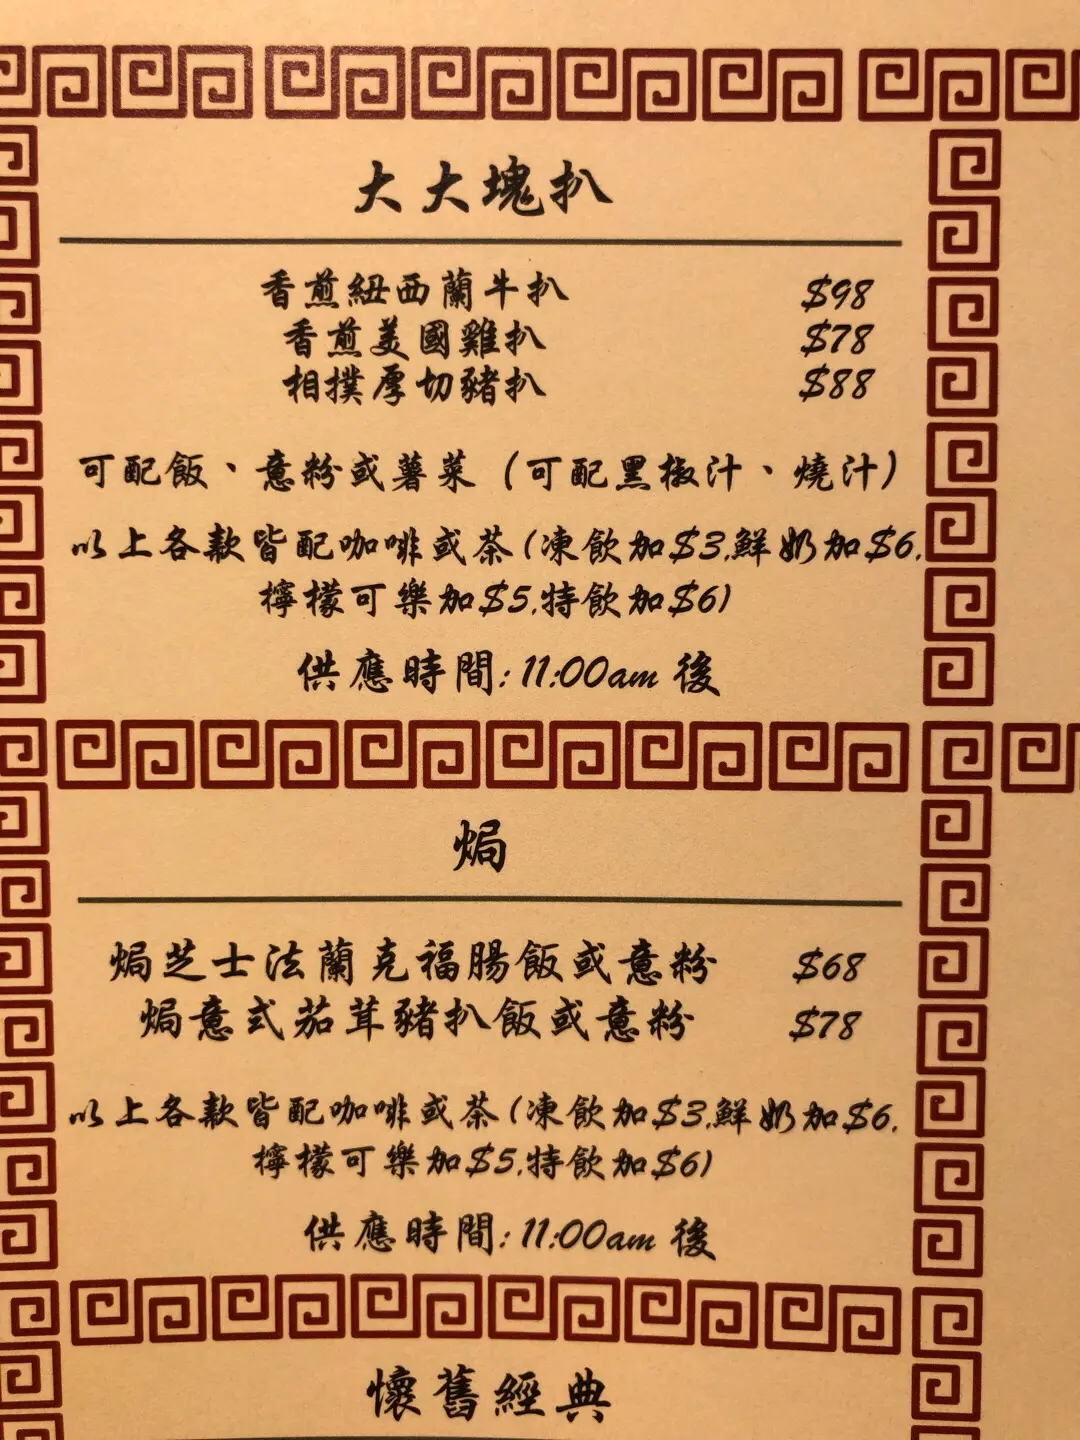 大大塊扒
香煎紐西蘭牛扒 $98
香煎美國雞扒 $78
相撲厚切豬扒 $88
可配飯、意粉或薯菜（可配黑椒汁、燒汁）
以上各款皆配咖啡或茶(凍飲加$3,鮮奶加$6,
檸檬可樂加$5,特飲加$6)
供應時間:11:00am 後
焗
焗芝士法蘭克福腸飯或意粉 $68
焗意式茄茸豬扒飯或意粉 $78
以上各款皆配咖啡或茶(凍飲加$3,鮮奶加$6,
檸檬可樂加$5,特飲加$6)
供應時間:11:00am 後
懷舊經典